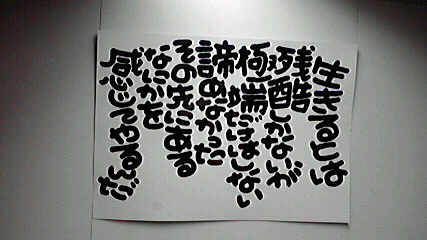 生きるとは
残酷しかないが
極端だけはしない
諦めなかった
その先にある
なにかを
感じてやるんだ